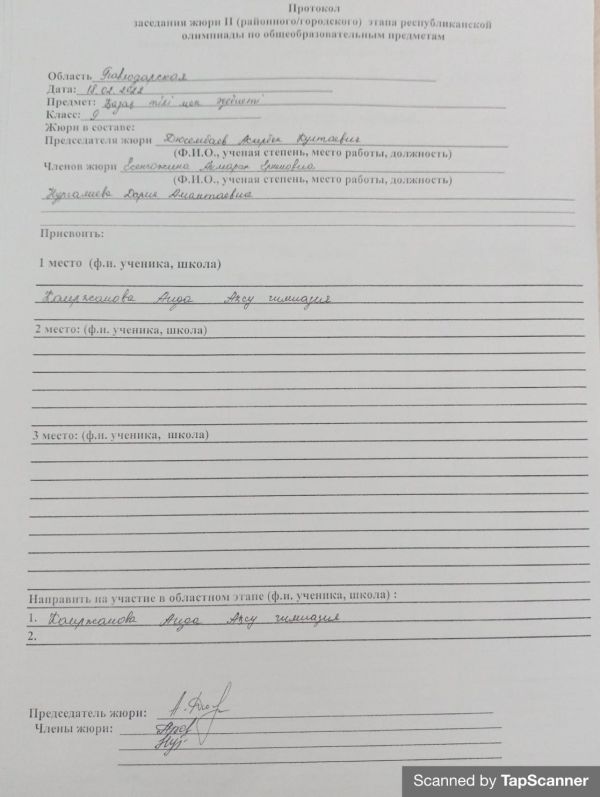 Протокол
заседания жюри II (районного/городского) этапа республиканской
олимпиады по общеобразовательным предметам
Область Павлодарская
Дата: 18.02.2022
Предмет: Қазақ тілі мен әдебиеті
Класс: 9
Жюри в составе:
Председателя жюри Дюсембаев
(Ф.И.О., ученая степень, место работы, должность)
Членов жюри
(Ф.И.О., ученая степень, место работы, должность)
Нургалиева Дария
Присвоить:
1 место (ф.и. ученика, школа)
Каиржанова Аида Ақсу гимназия
2 место: (ф.и. ученика, школа)
3 место: (ф.и. ученика, школа)
Направить на участие в областном этапе (ф.и. ученика, школа) :
1. Каиржанова Аида Ақсу гимназия
2.
Председатель жюри:
Члены жюри:
Scanned by TapScanner